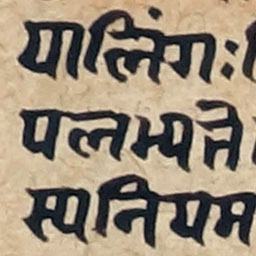 यालिंगः
पलभ्यते
स्यनियम